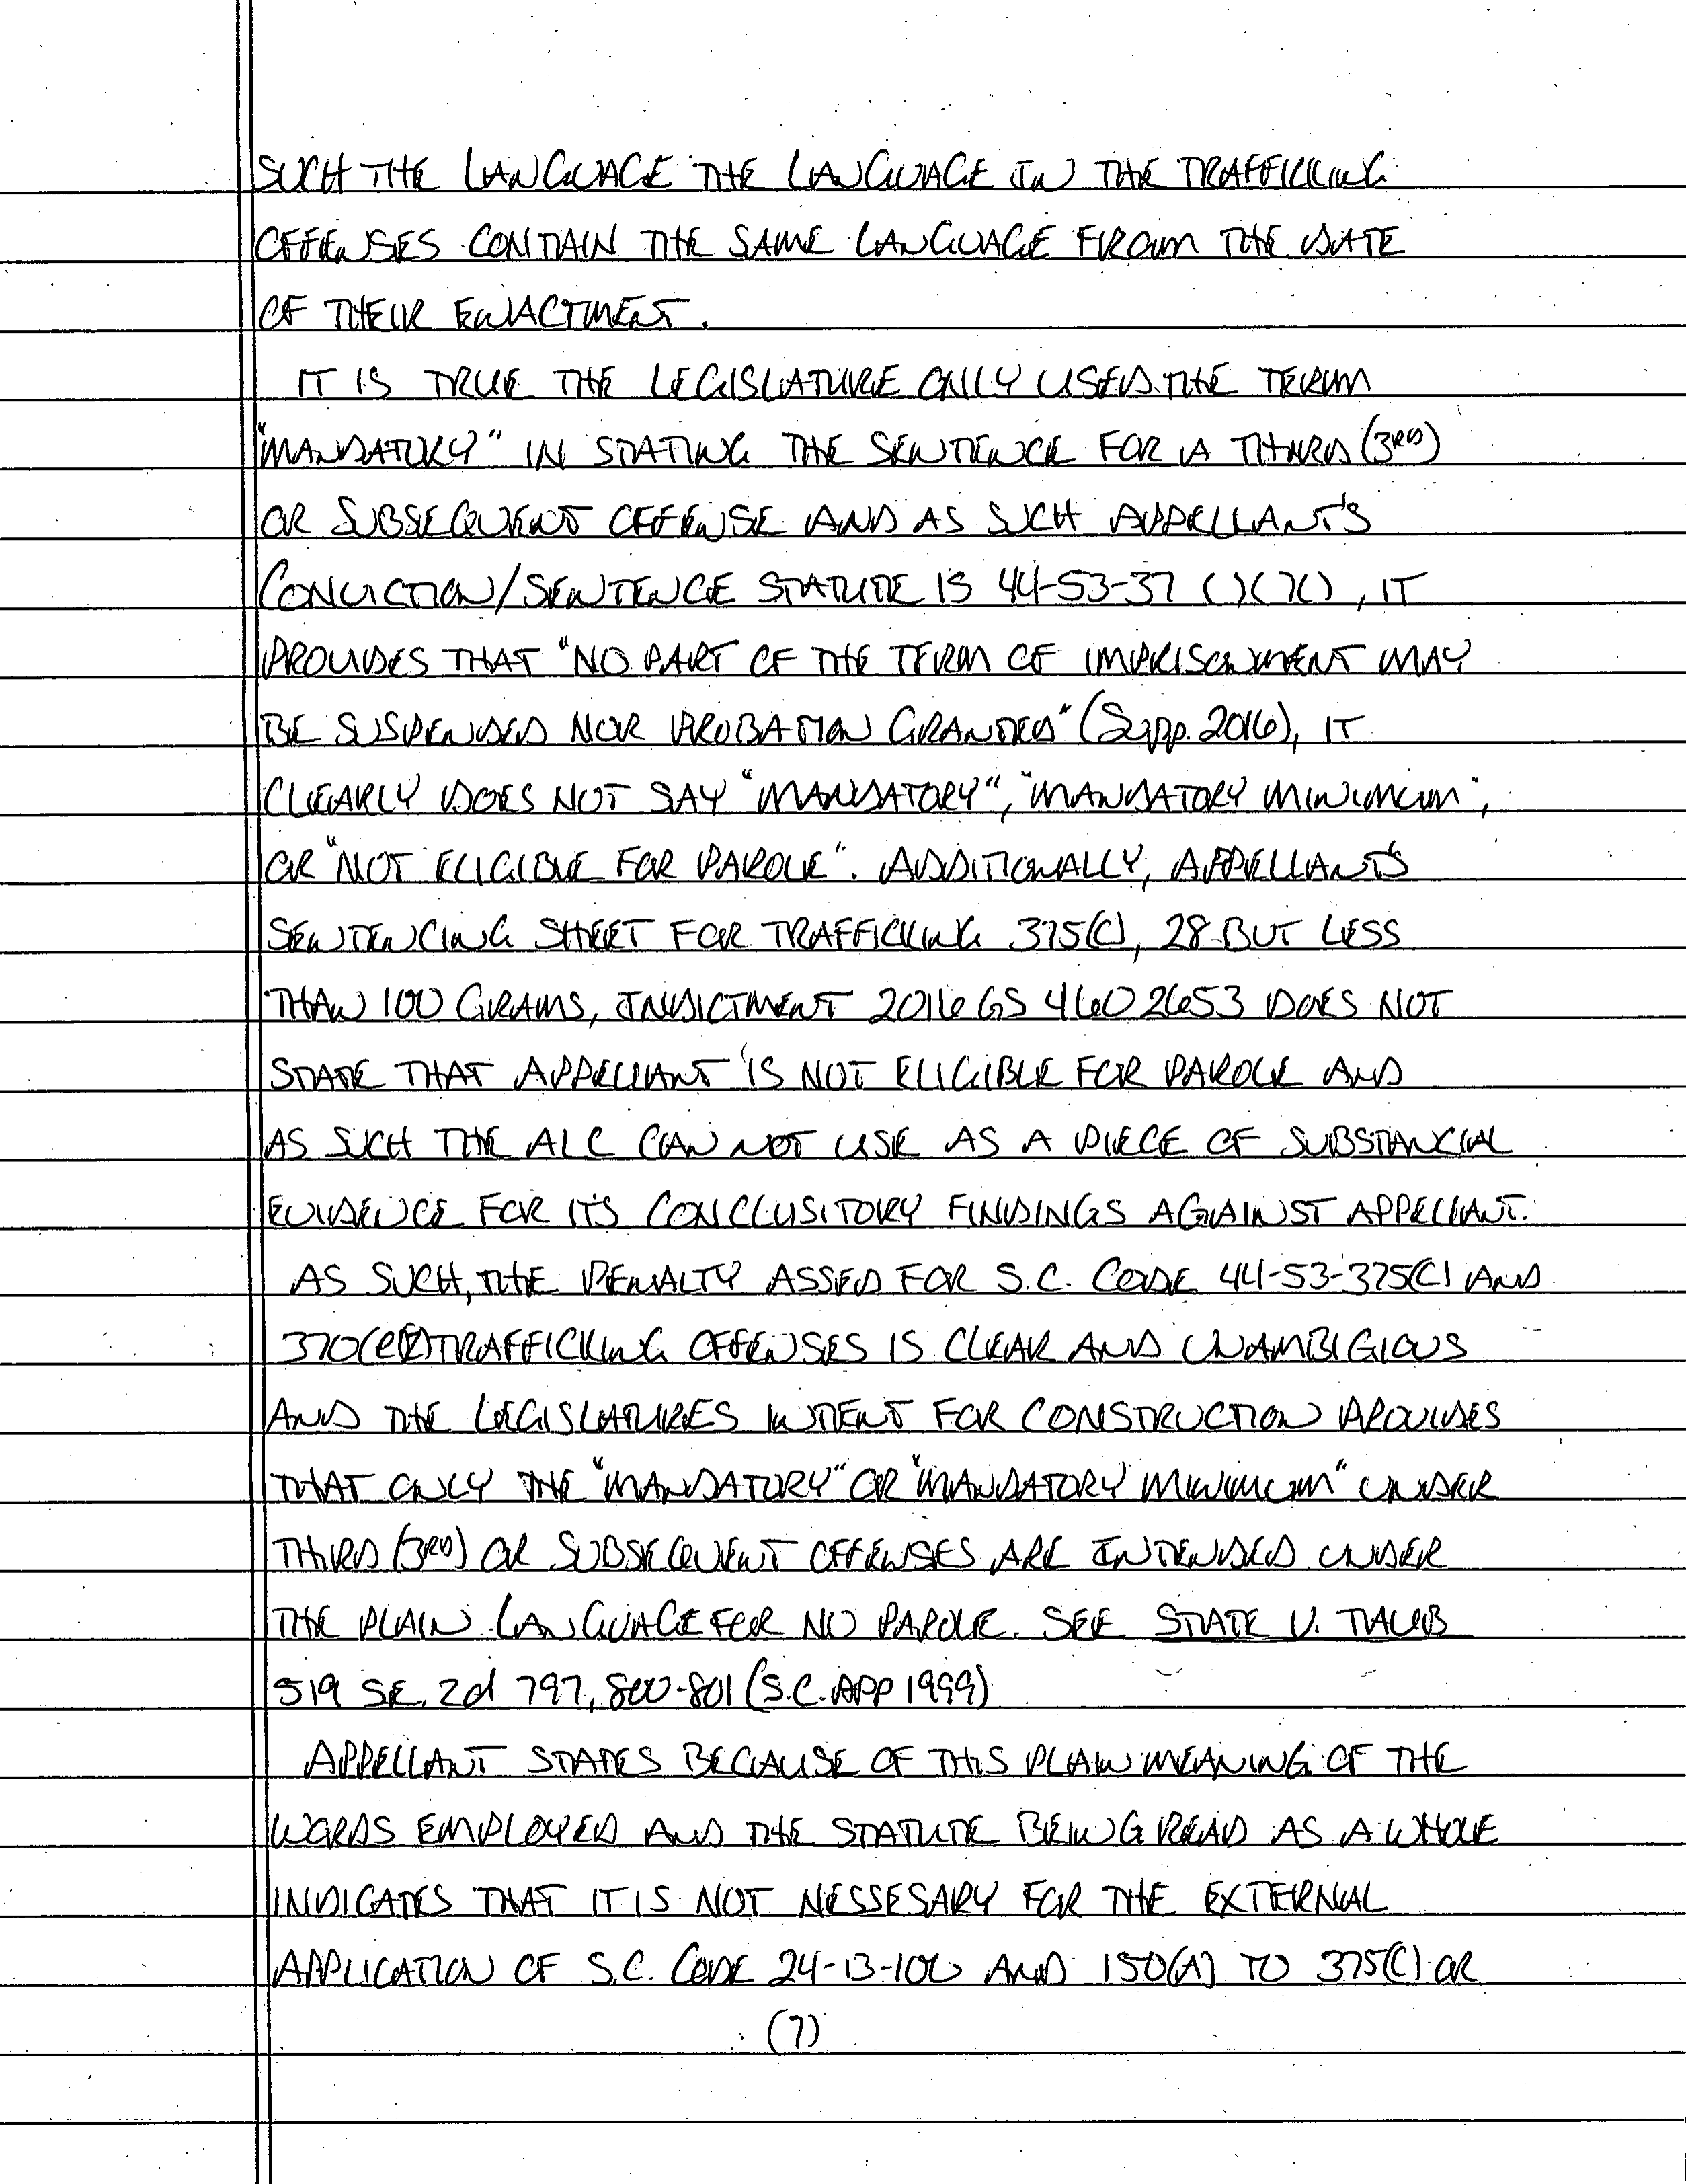 SUCH THE LANGUAGE THE LANGUAGE IN THE TRAFFICKING
OFFENSES CONTAIN THE SAME LANGUAGE FROM THE DATE
OF THEIR ENACTMENT.
IT IS TRUE THE LEGISLATURE ONLY USED THE TERM
"MANDATORY" IN STATING THE SENTENCE FOR A THIRD (3RD)
OR SUBSEQUENT OFFENSE AND AS SUCH APPELLANT'S
CONVICTION/SENTENCE STATUTE IS 44-53-37 ( )( ), IT
PROVIDES THAT "NO PART OF THE TERM OF IMPRISONMENT MAY
BE SUSPENDED NOR PROBATION GRANTED" (Supp. 2016), IT
CLEARLY DOES NOT SAY "MANDATORY", "MANDATORY MINIMUM",
OR "NOT ELIGIBLE FOR PAROLE". ADDITIONALLY, APPELLANT'S
SENTENCING SHEET FOR TRAFFICKING 375(C), 28 BUT LESS
THAN 100 GRAMS, INDICTMENT 2016 GS 4602653 DOES NOT
STATE THAT APPELLANT IS NOT ELIGIBLE FOR PAROLE AND
AS SUCH THE ALC CAN NOT USE AS A PIECE OF SUBSTANCIAL
EVIDENCE FOR IT'S CONCLUSITORY FINDINGS AGAINST APPELLANT.
AS SUCH, THE PENALTY ASSED FOR S.C. CODE 44-53-375(C) AND
370(e) TRAFFICKING OFFENSES IS CLEAR AND UNAMBIGIOUS
AND THE LEGISLATURES INTENT FOR CONSTRUCTION PROVIDES
THAT ONLY THE "MANDATORY" OR "MANDATORY MINIMUM" UNDER
THIRD (3RD) OR SUBSEQUENT OFFENSES ARE INTENDED UNDER
THE PLAIN LANGUAGE FOR NO PAROLE. SEE STATE V. TAUB
519 SE. 2d 797, 800-801 (S.C. APP 1999)
APPELLANT STATES BECAUSE OF THIS PLAIN MEANING OF THE
WORDS EMPLOYED AND THE STATUTE BEING READ AS A WHOLE
INDICATES THAT IT IS NOT NESSESARY FOR THE EXTERNAL
APPLICATION OF S.C. CODE 24-13-100 AND 150(A) TO 375(C) OR
(7)